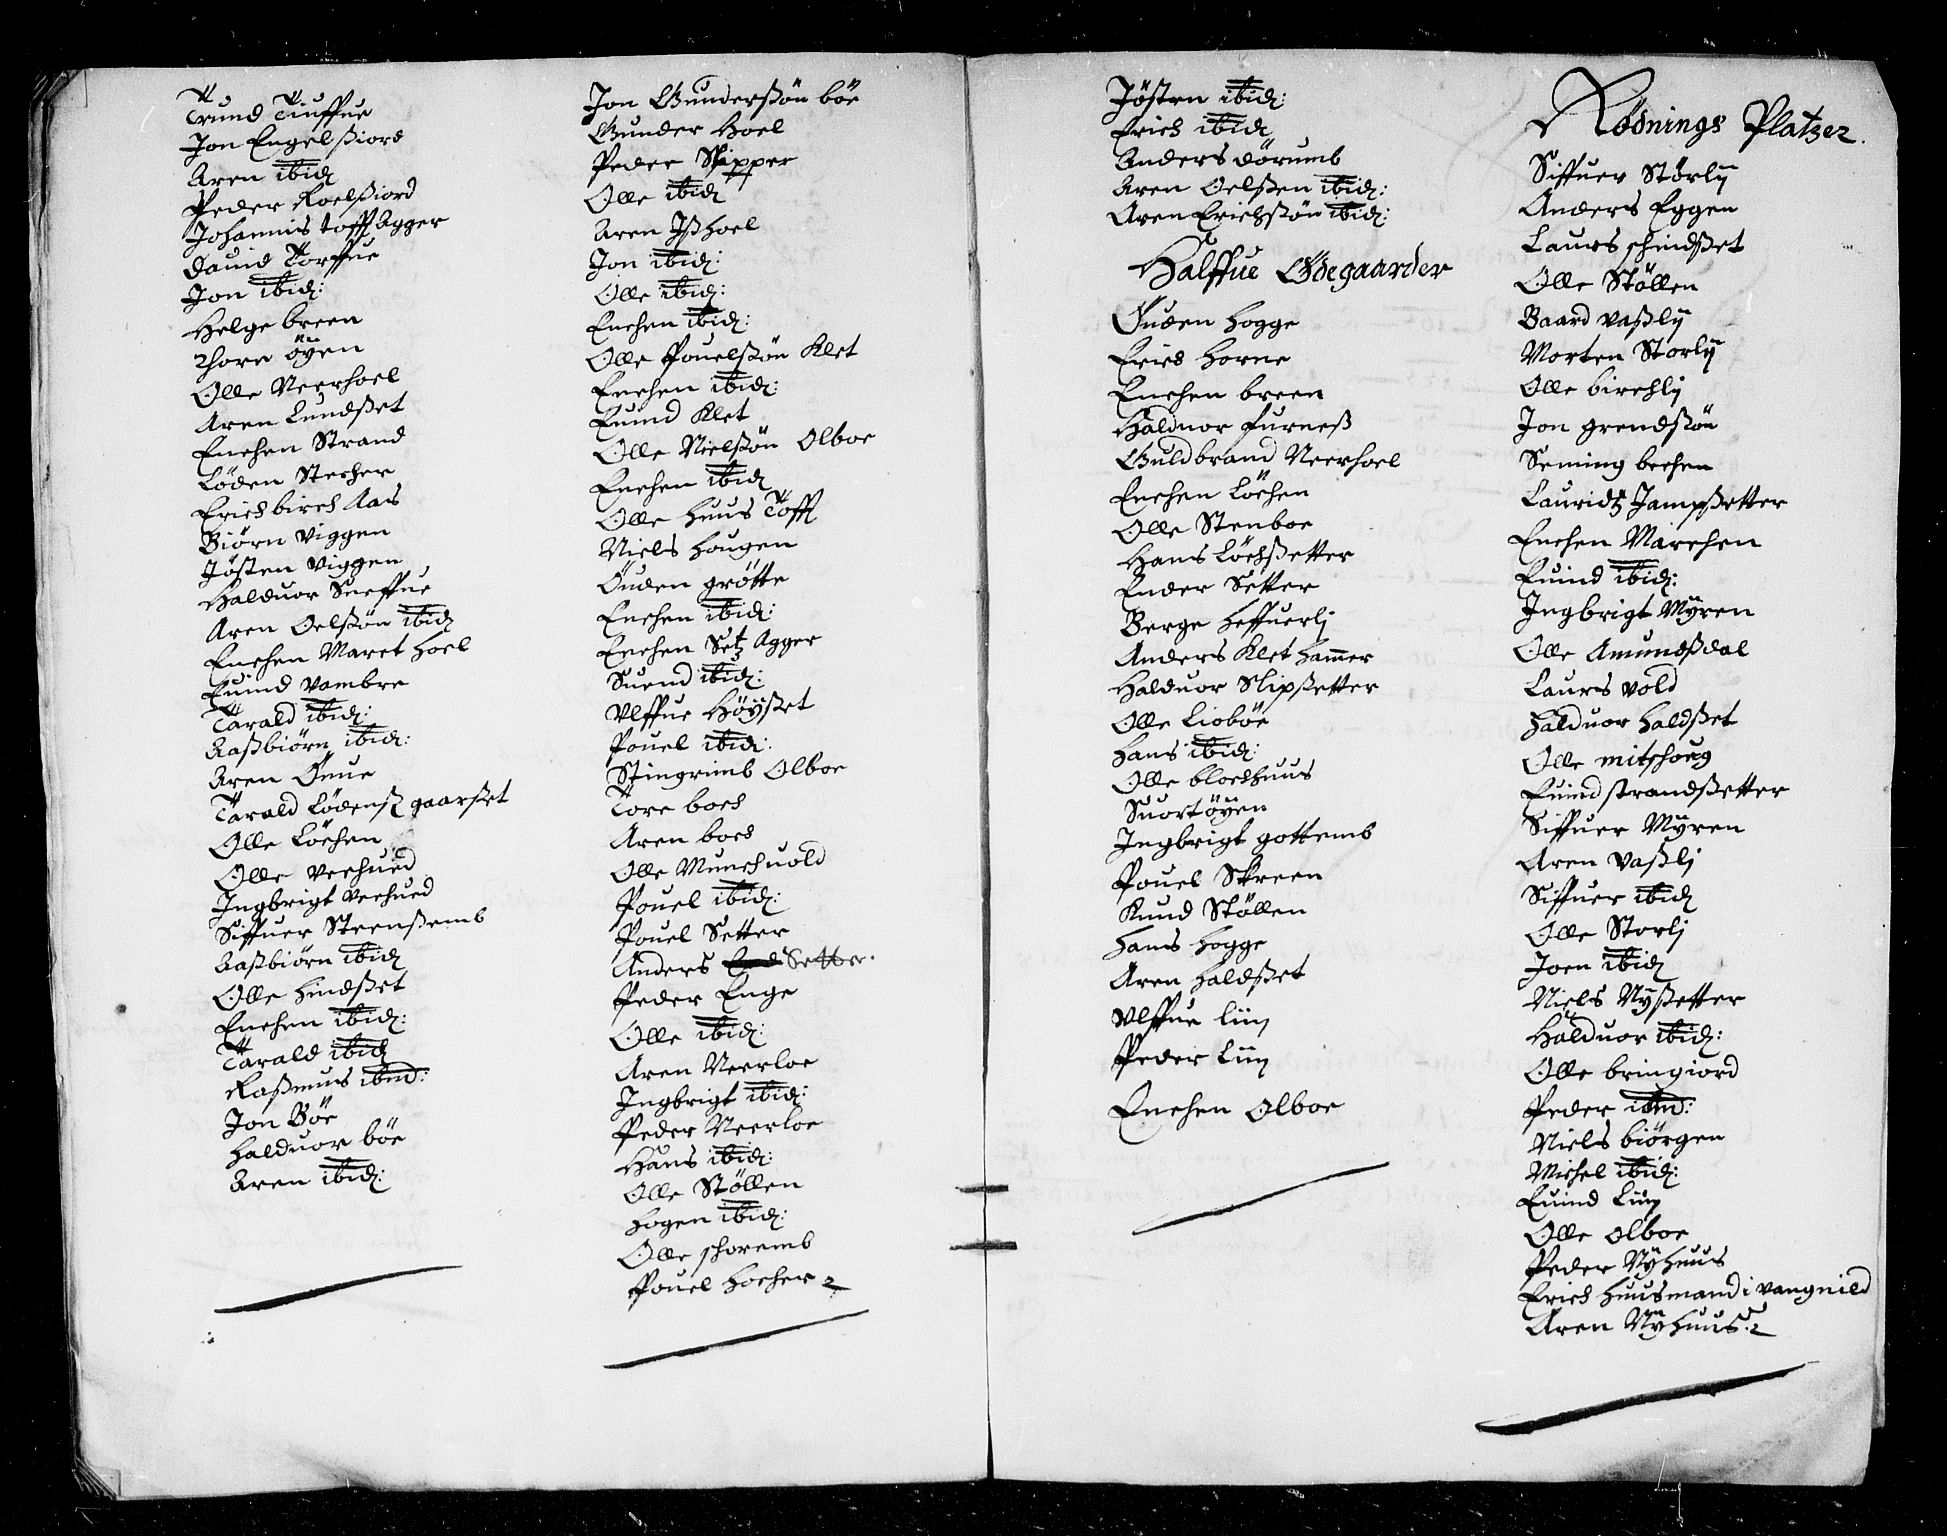 Trund Tiuffue
Jon Engelsiord
Aren ibid
Peder Roelsiord
Johannis toffl Agger
Dauid Torffue
Jon ibid:
Helge breen
Thore öÿen
Olle Neerhoel
Aren Lundset
Enchen Strand
Löden Stecher
Erich birch Aas
Biörn Viggen
Jösten Viggen
Halduor Sneffue
Aren Oelsön ibid
Enchen Maret hoel
Euind Vambre
Tarald ibid:
Aasbiörn ibid:
Aren Gnue
Tarald Lödens gaarset
Olle Löchen
Olle Veehued
Ingbrigt Veehued
Siffuer Steensemb
Aasbiörn ibid
Olle Hindset
Enchen ibid:
Tarald ibid
Rasmus ibm:
Jon Böe
Halduor böe
Aren ibid:
Jon Gundersön böe
Gunder Hoel
Peder Skipper
Olle ibid
Aren Ishoel
Jon ibid:
Olle ibid:
Enchen ibid:
Olle Pouelsön Klet
Enchen ibid:
Euind Klet
Olle Nielsön Olboe
Enchen ibid
Olle Huus Toffl
Niels Hougen
Ouden grötte
Enchen ibid:
Enchen Setz Agger
Suend ibid:
Vlffue Höÿset
Pouel ibid:
Stingrimb Olboe
Tore boch
Aren boch
Olle Munchuold
Pouel ibid:
Pouel Setter
Anders Setter.
Peder Enge
Olle ibid:
Aren Neerloe
Ingbrigt ibid:
Peder Neerloe
Hans ibid:
Olle Stöllen
Hogen ibid:
Olle schoremb
Pouel Hocher
Jösten ibid:
Erich ibid
Anders dörumb
Aren Oelsen ibid:
Aren Erichsön ibid:
Halffue Ödegaarder
Guden Hogge
Erich Horne
Enchen breen
Halduor furnes
Guldbrand Neerhoel
Enchen Löchen
Olle Stenboe
Hans Löchsetter
Ender Setter
Berge Heffuerlj
Anders Klet hammer
Halduor Slipsetter
Olle Lioböe
Hans ibid:
Olle bloekhuus
Suortöÿen
Ingbrigt gottemb
Pouel Skreen
Knud Stöllen
Hans Hogge
Aren Haldset
Vlffue Liin
Peder Liin
Enchen Olboe
Rödnings Platzer.
Siffuer Störlÿ
Anders Eggen
Laurs schindset
Olle Stöllen
Baard Vaslÿ
Morten Storlÿ
Olle birchlÿ
Jon grendsön
Seming bechen
Lauridz Jampsetter
Enchen Marchen
Euind ibid:
Ingbrigt Mÿren
Olle Amundsdal
Laurs Vold
Halduor Haldset
Olle mitschoug
Euind strandsetter
Siffuer Mÿren
Aren Vaslj
Siffuer ibid
Olle Storlj
Joen ibid
Niels Nÿsetter
Halduor ibid:
Olle bringiord
Peder ibm:
Niels biörgen
Michel ibid:
Euind Liin
Olle Olboe
Peder Nÿhuus
Erich Huusmand i Vangnild
Aren Nÿhuus: